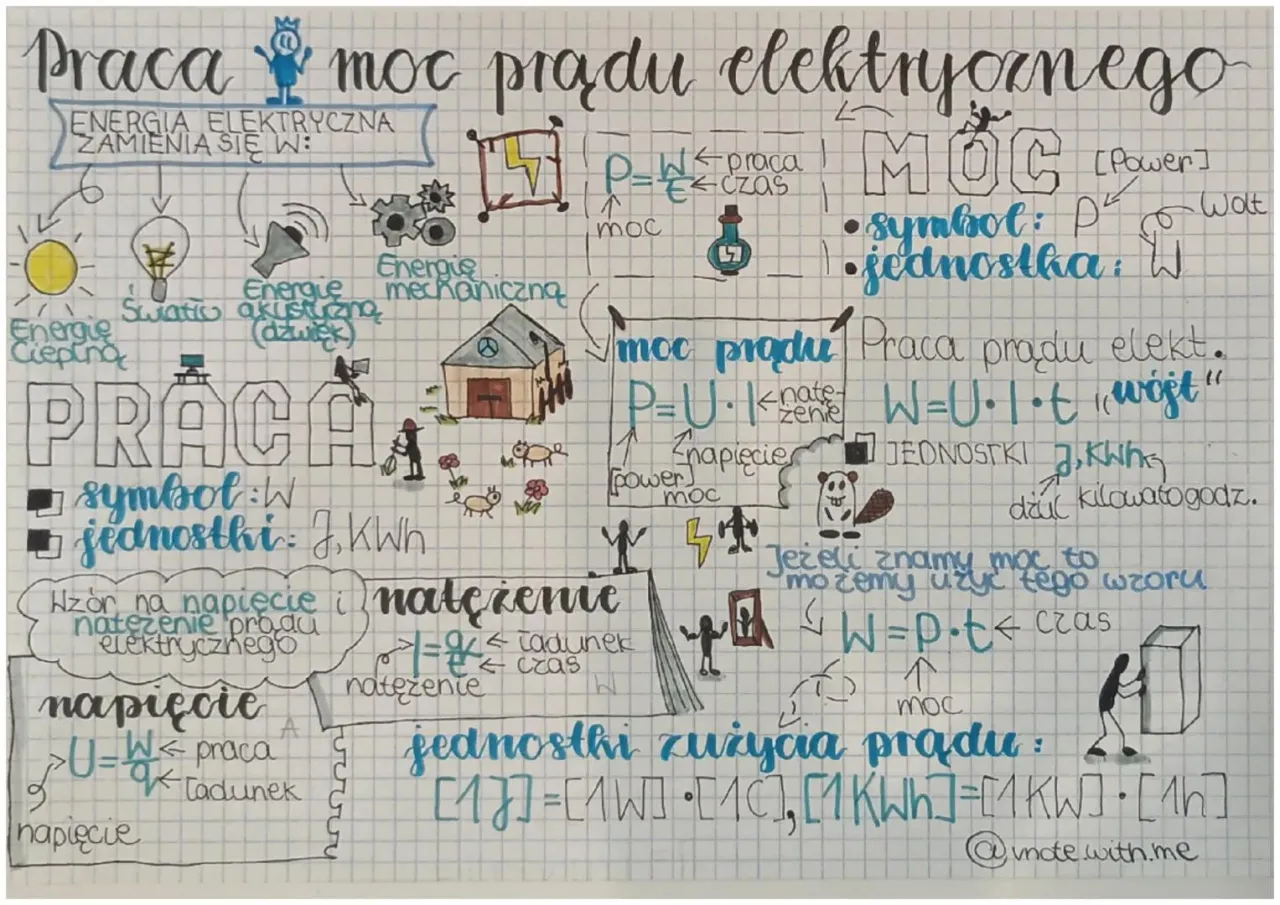 Praca i moc prądu elektrycznego
ENERGIA ELEKTRYCZNA
ZAMIENIA SIĘ W:
Energię
Cieplną
Światło
Energię
akustyczną
(dźwięk)
Energię
mechaniczną
P=W/t
praca
czas
moc
MOC
[Power]
• symbol: P
• jednostka: W
Wat
PRACA
symbol: W
jednostki: J, KWh
moc prądu
P=U·I
natę-
żenie
napięcie
[power]
moc
Praca prądu elekt.
W=U·I·t „wójt"
JEDNOSTKI J, KWh
dżul
kilowatogodz.
Jeżeli znamy moc to
możemy użyć tego wzoru
W=P·t
czas
moc
Wzór na napięcie i
natężenie prądu
elektrycznego
natężenie
I=q/t
ładunek
czas
natężenie
W
napięcie
A
U=W/q
praca
ładunek
napięcie
jednostki zużycia prądu:
[1J]=[1W]·[1C], [1KWh]=[1KW]·[1h]
@vnote.with.me